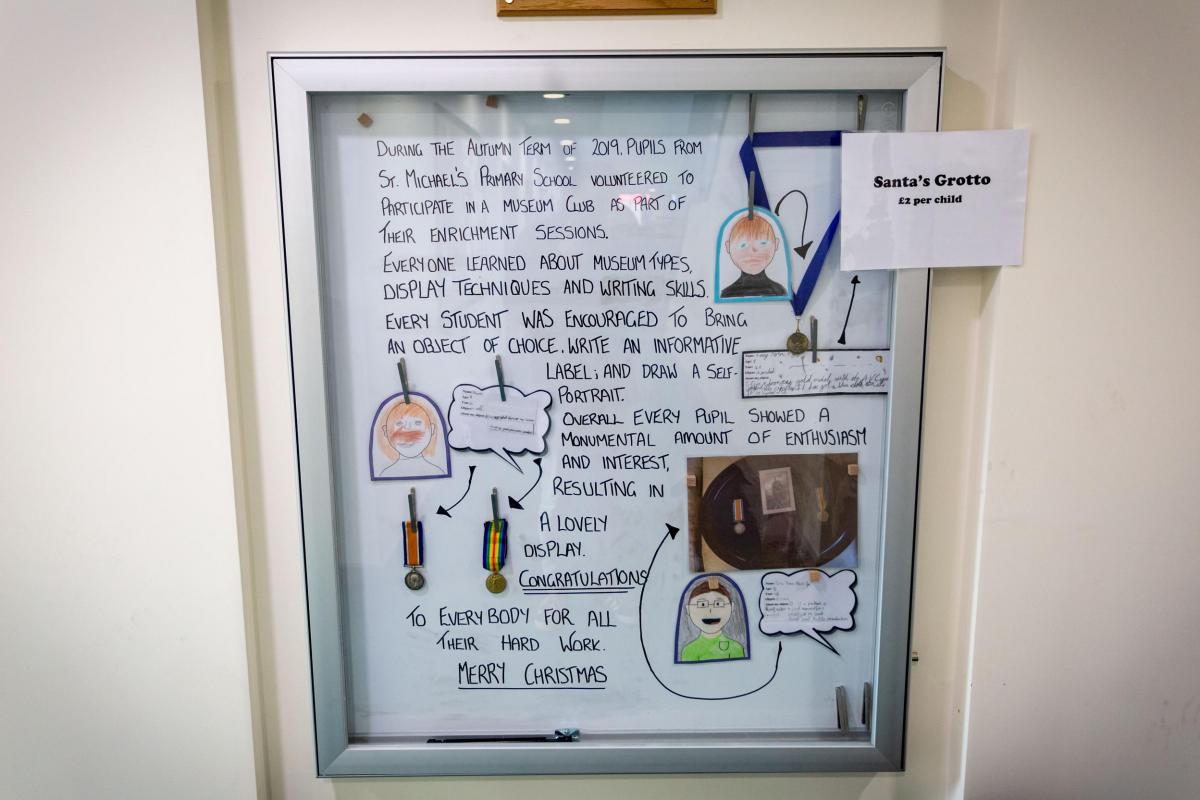 DURING THE AUTUMN TERM OF 2019, PUPILS FROM
ST. MICHAEL'S PRIMARY SCHOOL VOLUNTEERED TO
PARTICIPATE IN A MUSEUM CLUB AS PART OF
THEIR ENRICHMENT SESSIONS.
EVERYONE LEARNED ABOUT MUSEUM TYPES,
DISPLAY TECHNIQUES AND WRITING SKILLS.
EVERY STUDENT WAS ENCOURAGED TO BRING
AN OBJECT OF CHOICE, WRITE AN INFORMATIVE
LABEL; AND DRAW A SELF-
PORTRAIT.
OVERALL EVERY PUPIL SHOWED A
MONUMENTAL AMOUNT OF ENTHUSIASM
AND INTEREST,
RESULTING IN
A LOVELY
DISPLAY.
CONGRATULATIONS
TO EVERYBODY FOR ALL
THEIR HARD WORK.
MERRY CHRISTMAS
Santa's Grotto
£2 per child